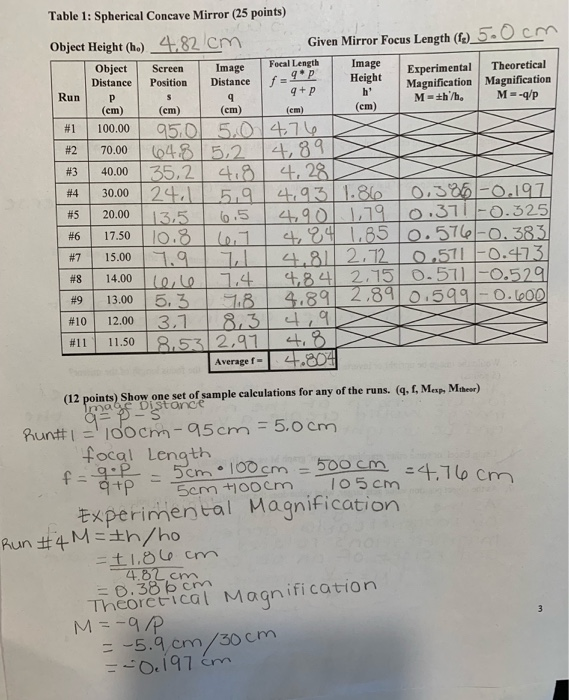 Table 1: Spherical Concave Mirror (25 points)
Object Height (hₒ) 4.82 cm Given Mirror Focus Length (f₈) 5.0 cm
Run Object Distance p (cm) Screen Position s (cm) Image Distance q (cm) Focal Length f = q * p / q + p (cm) Image Height h' (cm) Experimental Magnification M = ±h'/hₒ Theoretical Magnification M = -q/p
#1 100.00 95.0 5.0 4.76
#2 70.00 64.8 5.2 4.89
#3 40.00 35.2 4.8 4.28
#4 30.00 24.1 5.9 4.93 1.86 0.386 -0.197
#5 20.00 13.5 6.5 4.90 1.79 0.371 -0.325
#6 17.50 10.8 6.7 4.84 1.85 0.576 -0.383
#7 15.00 7.9 7.1 4.81 2.72 0.571 -0.473
#8 14.00 6.6 7.4 4.84 2.75 0.571 -0.529
#9 13.00 5.3 7.8 4.89 2.89 0.599 -0.600
#10 12.00 3.7 8.3 4.9
#11 11.50 8.53 2.97 4.8
Average f = 4.804
(12 points) Show one set of sample calculations for any of the runs. (q, f, Mexp, Mtheor)
Image Distance
q = p - s
Run #1 = 100cm - 95cm = 5.0 cm
focal Length
f = q·p / q+p = 5cm • 100cm / 5cm + 100cm = 500 cm / 105 cm = 4.76 cm
Experimental Magnification
Run #4 M = ±h/ho
= ±1.86 cm / 4.82 cm
= 0.386 cm
Theoretical Magnification
M = -q/p
= -5.9 cm/30cm
= -0.197 cm
3